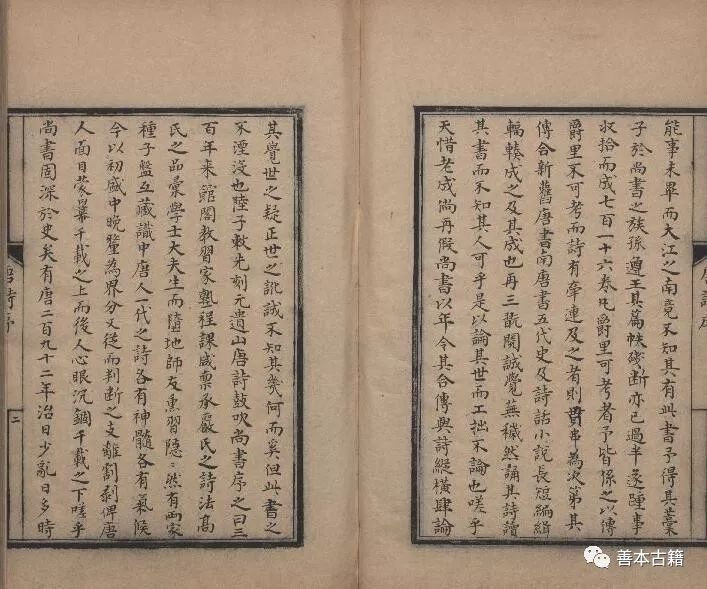 能事未畢而大江之南竟不知其有此書予得其藁
子於尚書之族孫遵王其篇帙殘斷亦已過半遂踵事
收拾而成七百一十六卷凡爵里可考者予皆係之以傳
爵里不可考而詩有牽連及之者則貫串為次第其
傳合新舊唐書南唐書五代史及詩話小説長短編緝
輻輳成之及其成也再三翫閱誠覺蕪穢然誦其詩讀
其書而不知其人可乎是以論其世而工拙不論也嗟乎
天惜老成尚再假尚書以年令其合傳與詩縱橫肆論
其覺世之疑正世之訛誠不知其幾何而奚但此書之
不湮沒也陸子敕先刻元遺山唐詩鼓吹尚書序之曰三
百年來館閣教習家塾程課咸稟承嚴氏之詩法高
氏之品彙學士大夫生而墮地師友熏習隱〻然有兩家
種子盤互藏識中唐人一代之詩各有神髓各有氣候
今以初盛中晚釐為界分又從而判斷之支離割剥俾唐
人面目蒙羃千載之上而後人心眼沉錮千載之下嗟乎
尚書固深於史矣有唐二百九十二年治日少亂日多時
唐詩序
二
善本古籍